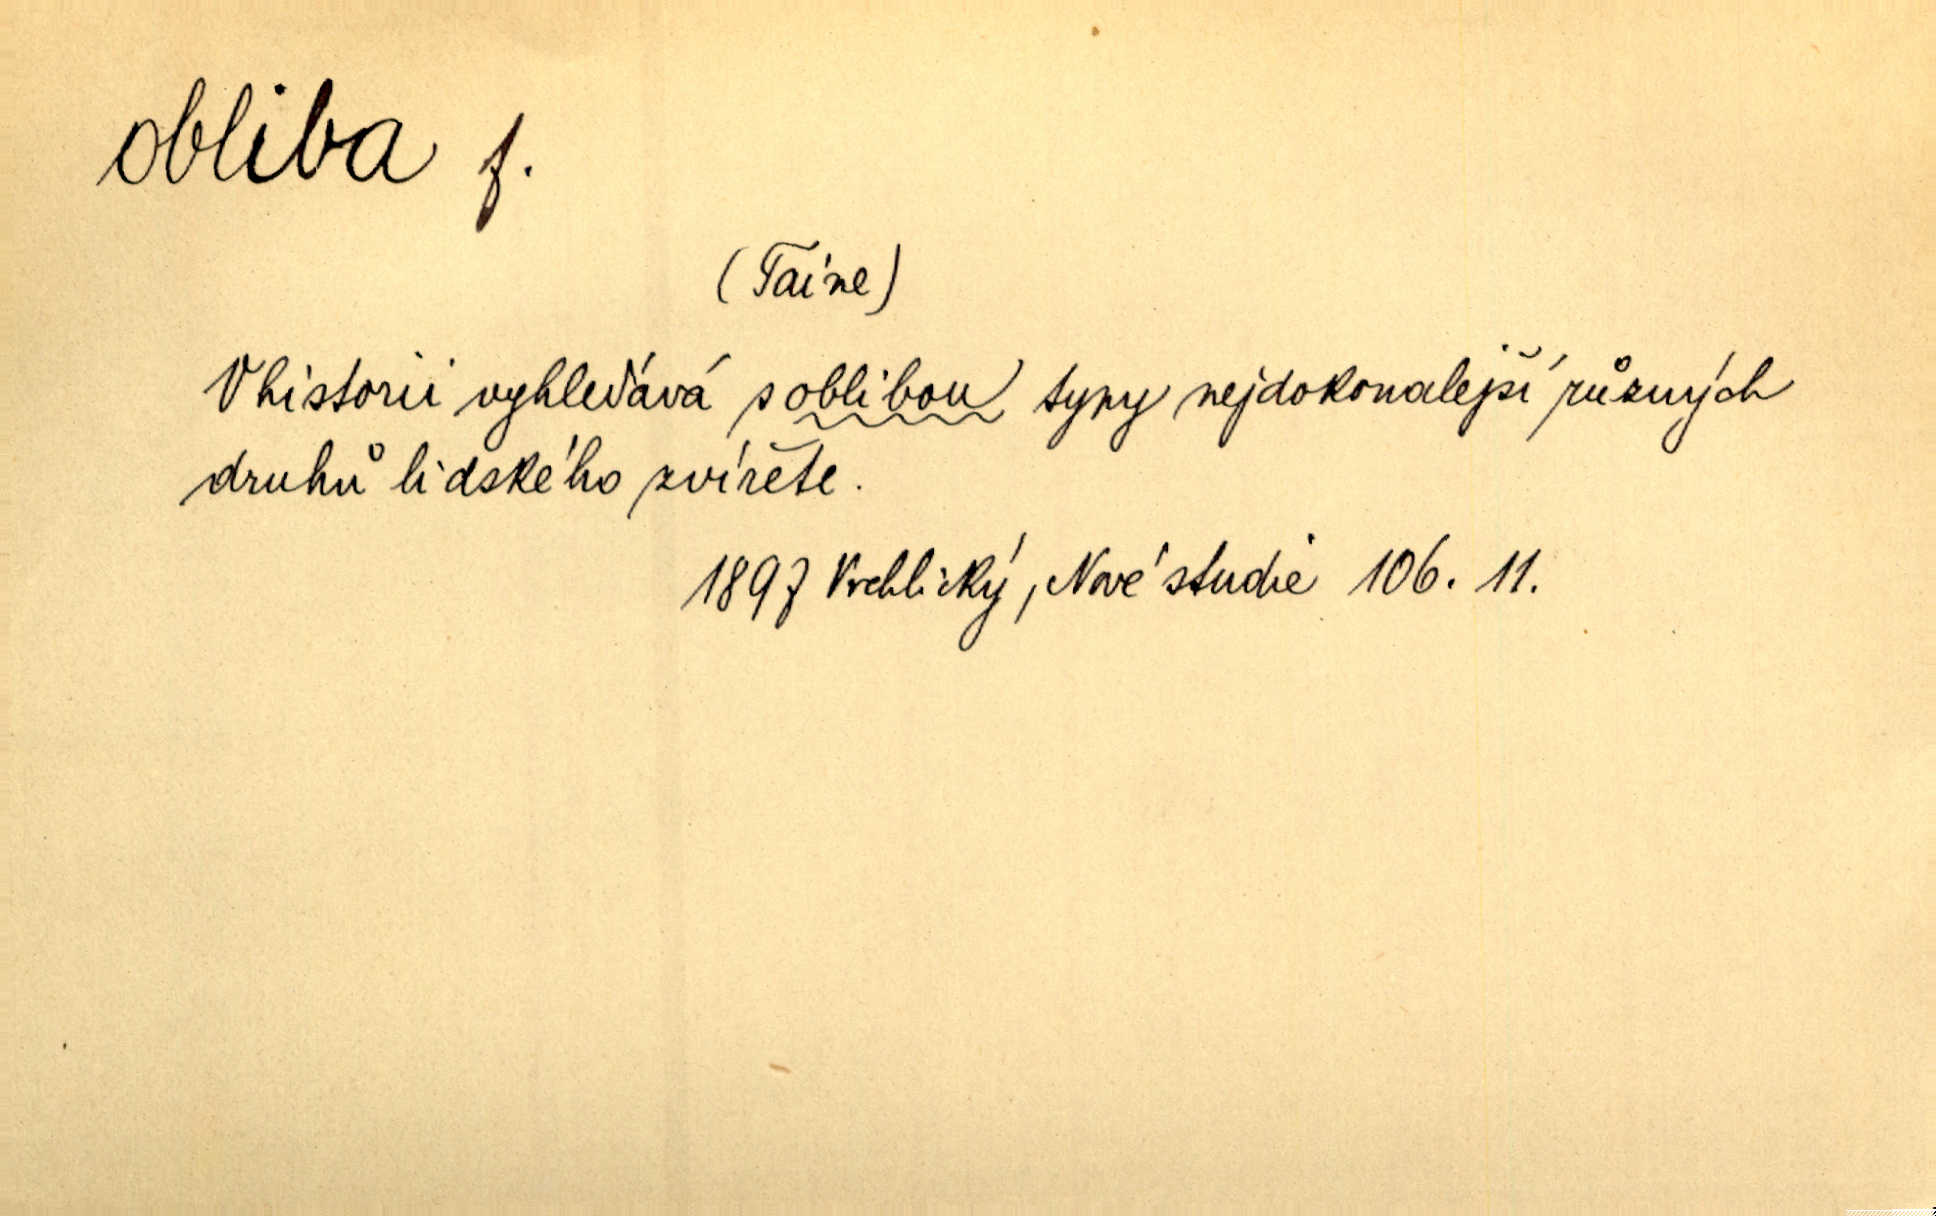 obliba f.
(Taine)
V historii vyhledává s oblibou typy nejdokonalejší různých
druhů lidského zvířete.
1897 Vrchlický, Nové studie 106. 11.